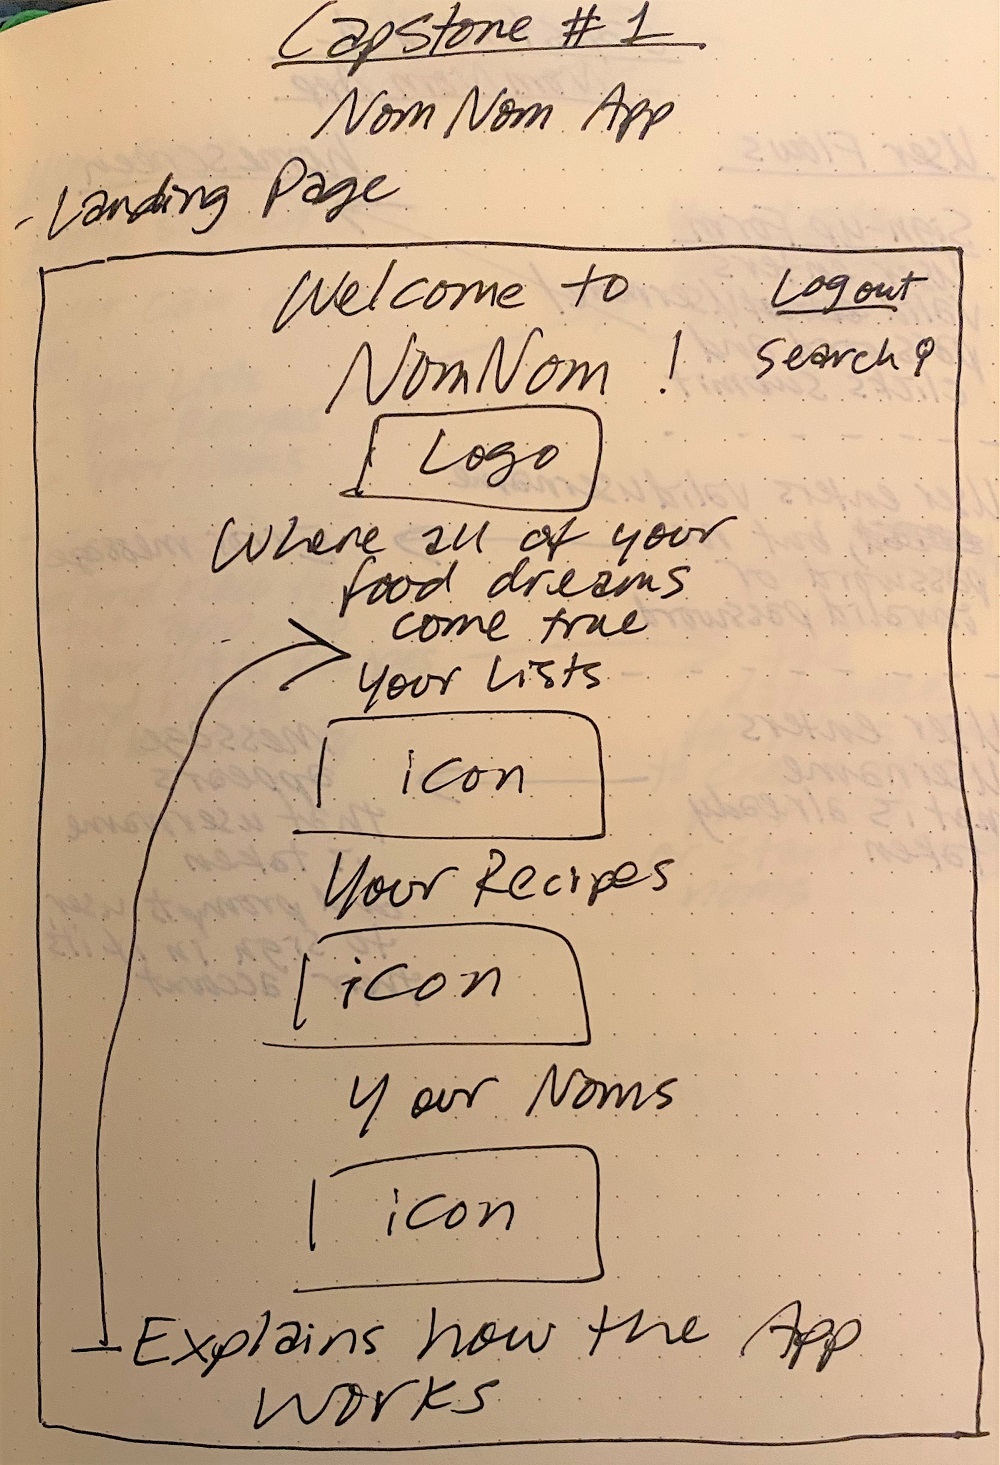 Capstone #1
Nom Nom App
- Landing Page
Welcome to
NomNom!
Logout
Search
Logo
Where all of your
food dreams
come true
Your Lists
icon
Your Recipes
icon
Your Noms
icon
Explains how the App
works